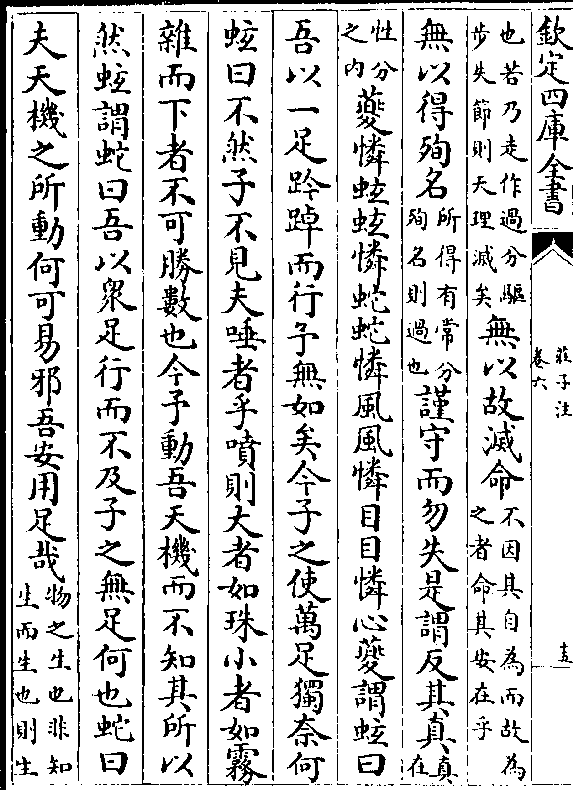 欽定四庫全書
莊子注
卷六
十五
也若乃走作過分驅
步失節則天理滅矣
無以故滅命
不因其自為而故為
之者命其安在乎
無以得殉名
所得有常分
殉名則過也
謹守而勿失是謂反其真
真在
性分
之内
夔憐蚿蚿憐蛇蛇憐風風憐目目憐心夔謂蚿曰
吾以一足趻踔而行予無如矣今子之使萬足獨奈何
蚿曰不然子不見夫唾者乎噴則大者如珠小者如霧
雜而下者不可勝數也今予動吾天機而不知其所以
然蚿謂蛇曰吾以衆足行而不及子之無足何也蛇曰
夫天機之所動何可易邪吾安用足哉
物之生也非知
生而生也則生